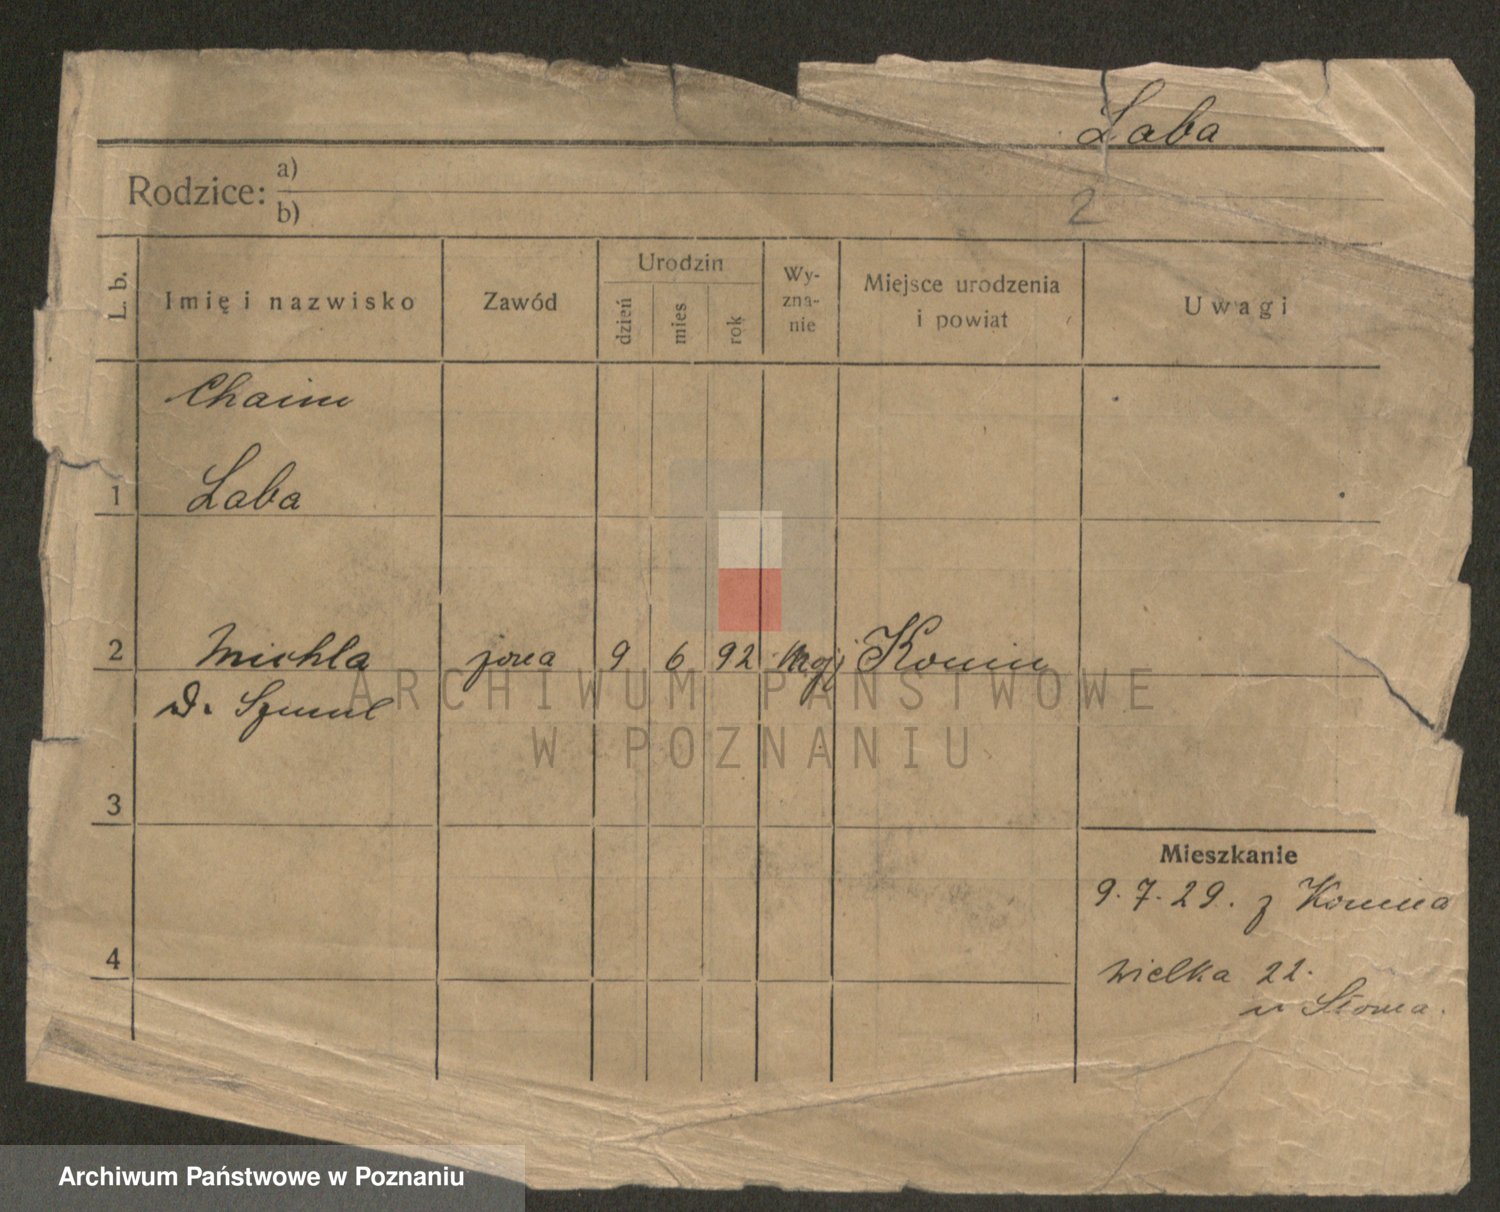 Laba
Rodzice: a)
b)
2
L. b.
Imię i nazwisko
Zawód
Urodzin
dzień
mies
rok
Wy-
zna-
nie
Miejsce urodzenia
i powiat
Uwagi
Chaim
1 Laba
2 Michla żona 9 6 92 mojż Konin
D. Szmul
3
4
Mieszkanie
9.7.29. z Konina
Wielka 22.
u Słoma.
ARCHIWUM PAŃSTWOWE
W POZNANIU
Archiwum Państwowe w Poznaniu